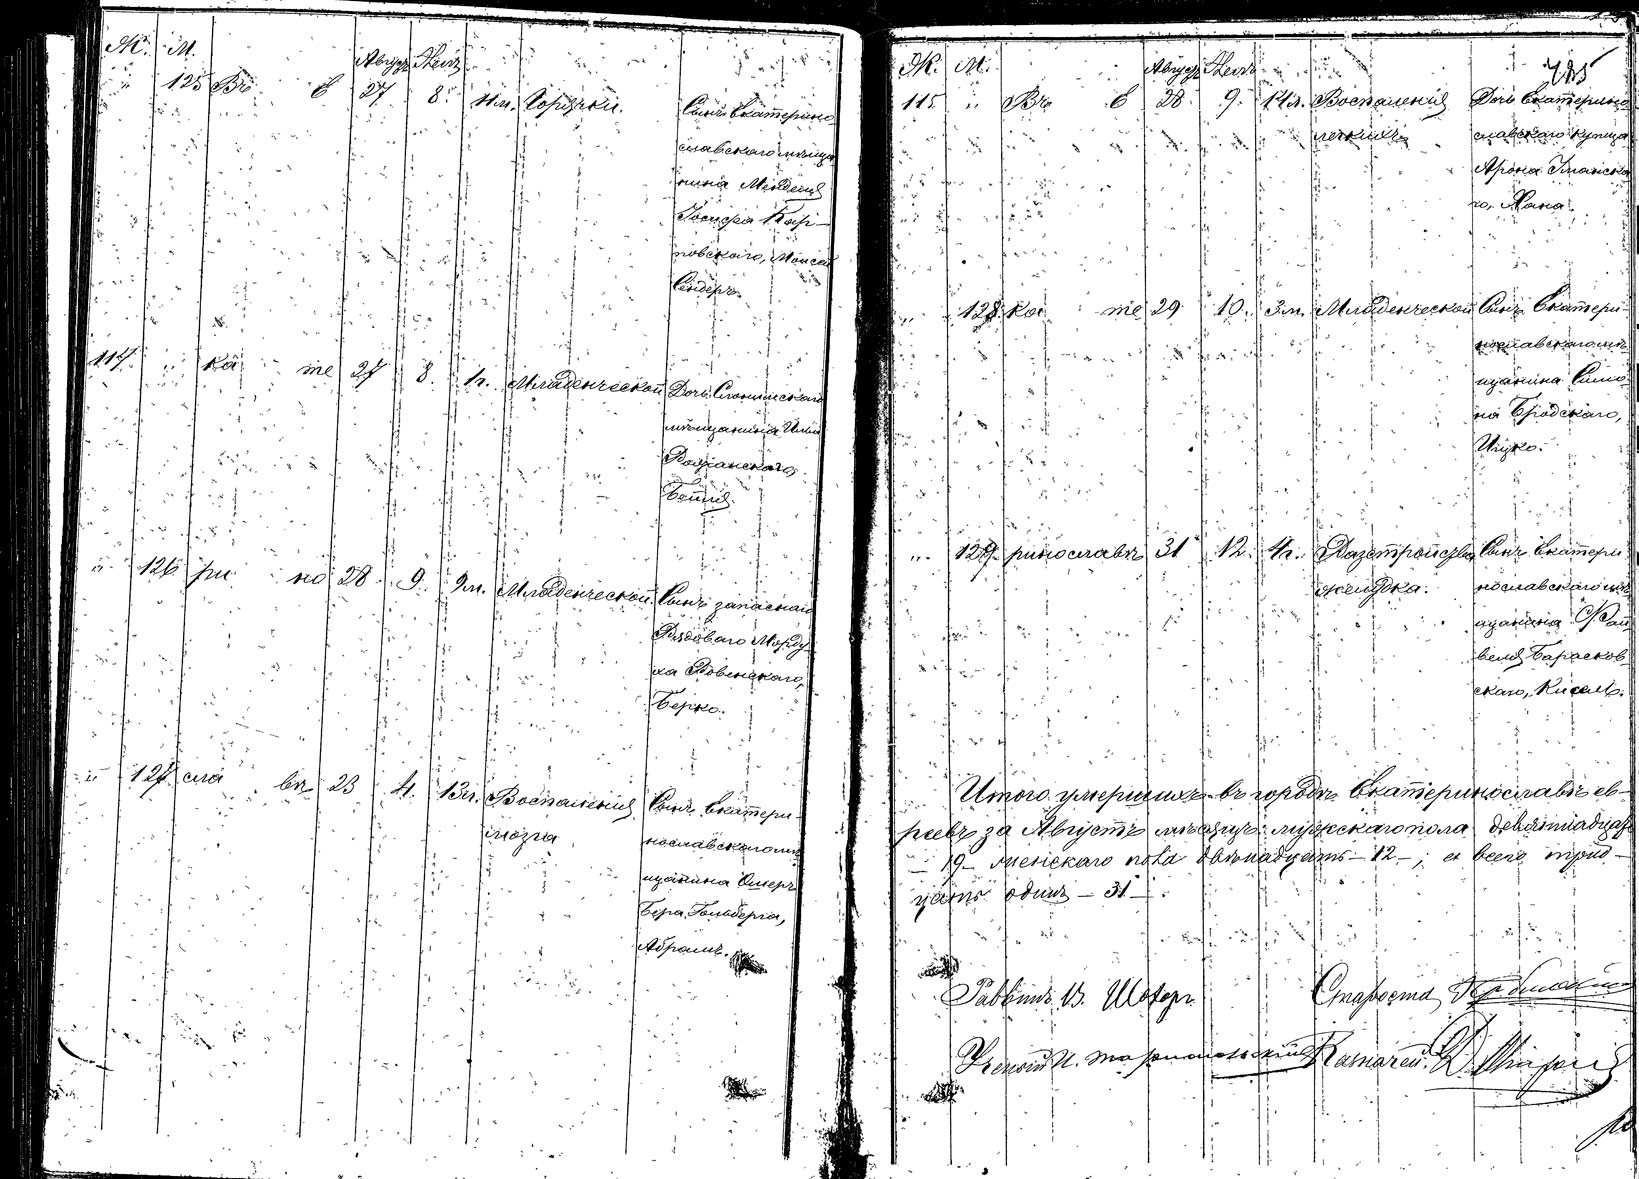 Ж. М. Август Элулъ
" 125 Въ Е 27 8. 11 м. Горячки. Сынъ Екатерино-
славскаго мѣща-
нина Менделя
Іосифа Кар-
повскаго, Моисей
Сендеръ.
117. " ка те 27 8. 1 г. Младенческой Дочь Слонимскаго
мѣщанина
Бейля.
" 126 ри но 28. 9. 9 м. Младенческой. Сынъ запаснаго
Рядоваго Морду-
ха Ровенскаго,
Берко.
" 127 сла вѣ 23 4. 13 л. Воспаленія Сынъ Екатери-
мозга нославскаго мѣ-
щанина
Бера Гольберга,
Абрамъ.
Ж. М. Август Элулъ
115. " Въ Е 28. 9. 14 л. Воспаленія Дочь Екатерино-
легкихъ славскаго купца
Арона
го, Хана.
" 128. ка те 29 10. 3 м. Младенческой Сынъ Екатери-
нославскаго мѣ-
щанина Симо-
на Бродскаго,
Ицко.
" 129. ринославѣ 31 12. 4 г. Разстройства Сынъ Екатери-
желудка. нославскаго мѣ-
щанина Фай-
веля
скаго,
Итого умершихъ въ городѣ Екатеринославѣ ев-
реевъ за Августъ мѣсяцъ мужскаго пола девятнадцать
- 19 - женскаго пола двѣнадцать - 12 -; а всего трид-
цать одинъ - 31 -.
Раввинъ В. Шохоръ Староста
Ученый И. Тарнопольскій Казначей